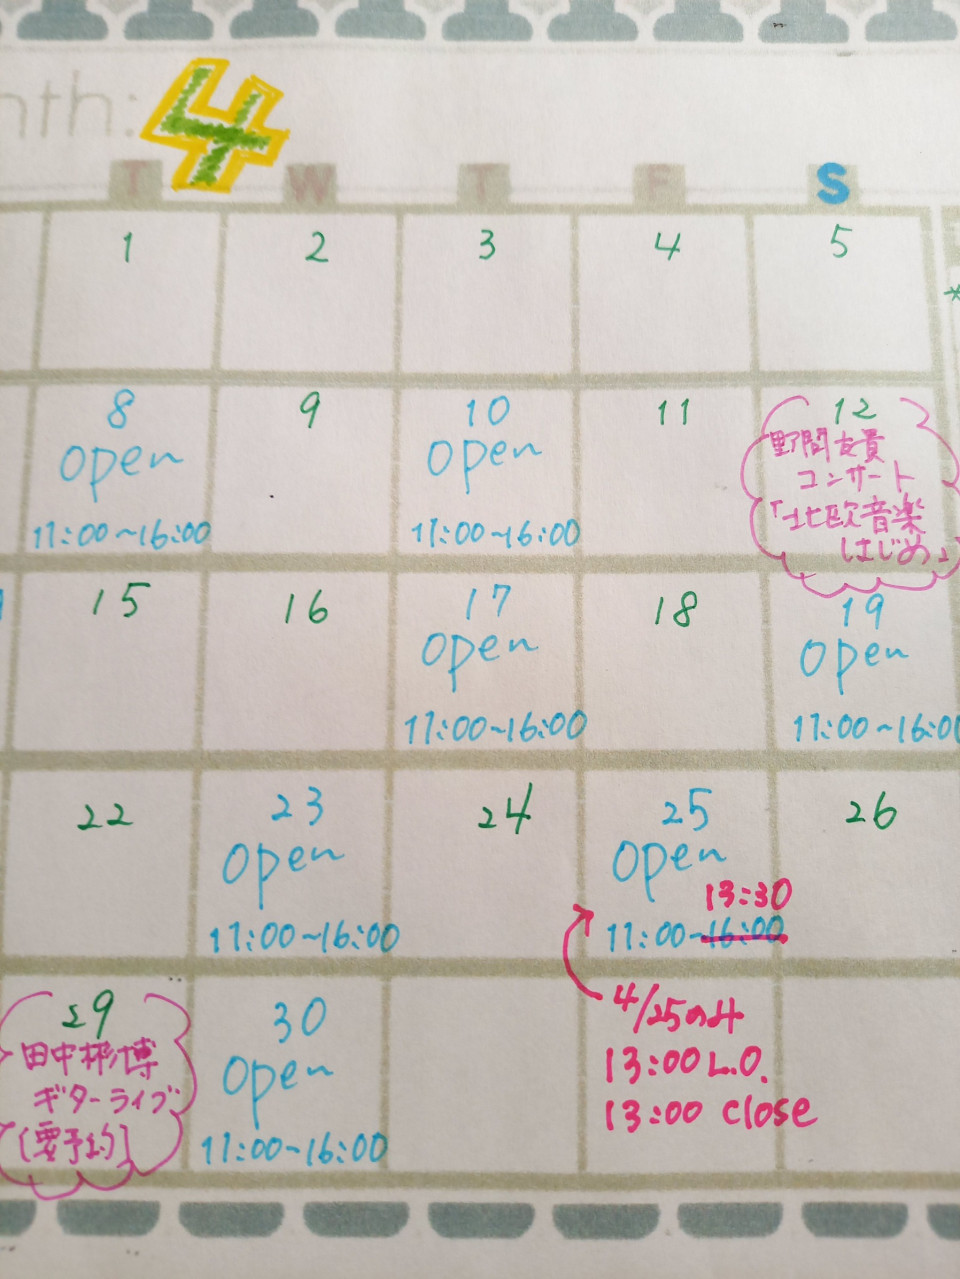 nth: 4
T W T F S
1 2 3 4 5
8 9 10 11 12
open open 野間友貴
コンサート
11:00~16:00 11:00~16:00 「北欧音楽
はじめ」
15 16 17 18 19
open open
11:00~16:00 11:00~16:00
22 23 24 25 26
open open
13:30
11:00~16:00 11:00~16:00
29 30 4/25のみ
田中彬博 open 13:00 L.O.
ギターライブ 13:00 close
[要予約] 11:00~16:00